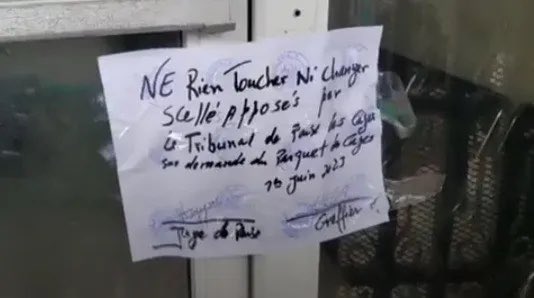 NE Rien Toucher Ni Changer
Scellé Apposés par
Le Tribunal de Paise les Cayes
sur demande du Parquet des Cayes
juin 2023
Juge de Paise
Greffier